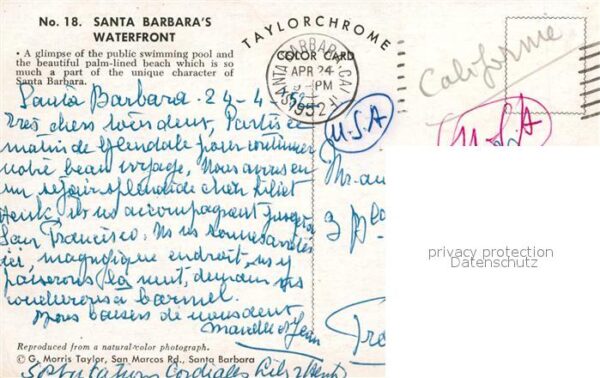 No. 18. SANTA BARBARA'S
WATERFRONT
• A glimpse of the public swimming pool and
the beautiful palm-lined beach which is so
much a part of the unique character of
Santa Barbara.
TAYLORCHROME
COLOR CARD
SANTA BARBARA, CALIF.
APR 24
9 - PM
1952
Californie
U.S.A
U.S.A
Santa Barbara. 24-4-52
Très chers vous deux, Partis ce
matin de Glendale pour continuer
notre beau voyage. Nous avons eu
un séjour splendide chez Liliet
Henk, ils ns accompagnent jusqu'à
San Francisco. Ns ns sommes arrêtés
ici, magnifique endroit, ns y
passerons la nuit, demain ns
coucherons à Carmel.
Nous baisers de nous deux
Marcelle et Jean
Salutations Cordiales Lily & Henk
3 Pl
privacy protection
Datenschutz
Reproduced from a natural color photograph.
© G. Morris Taylor, San Marcos Rd., Santa Barbara